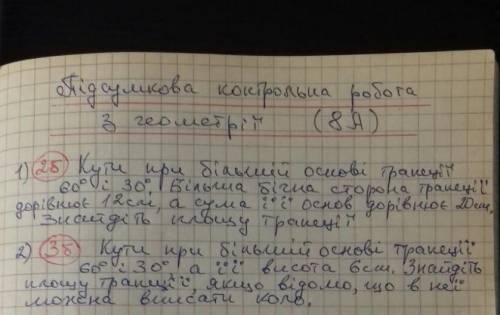 Підсумкова контрольна робота
з геометрії (8А)
1) 2б Кути при більшій основі трапеції
60° і 30°. Більша бічна сторона трапеції
дорівнює 12см, а сума її основ дорівнює 20см.
Знайдіть площу трапеції
2) 3б Кути при більшій основі трапеції
60° і 30°, а її висота 6см. Знайдіть
площу трапеції, якщо відомо, що в неї
можна вписати коло.